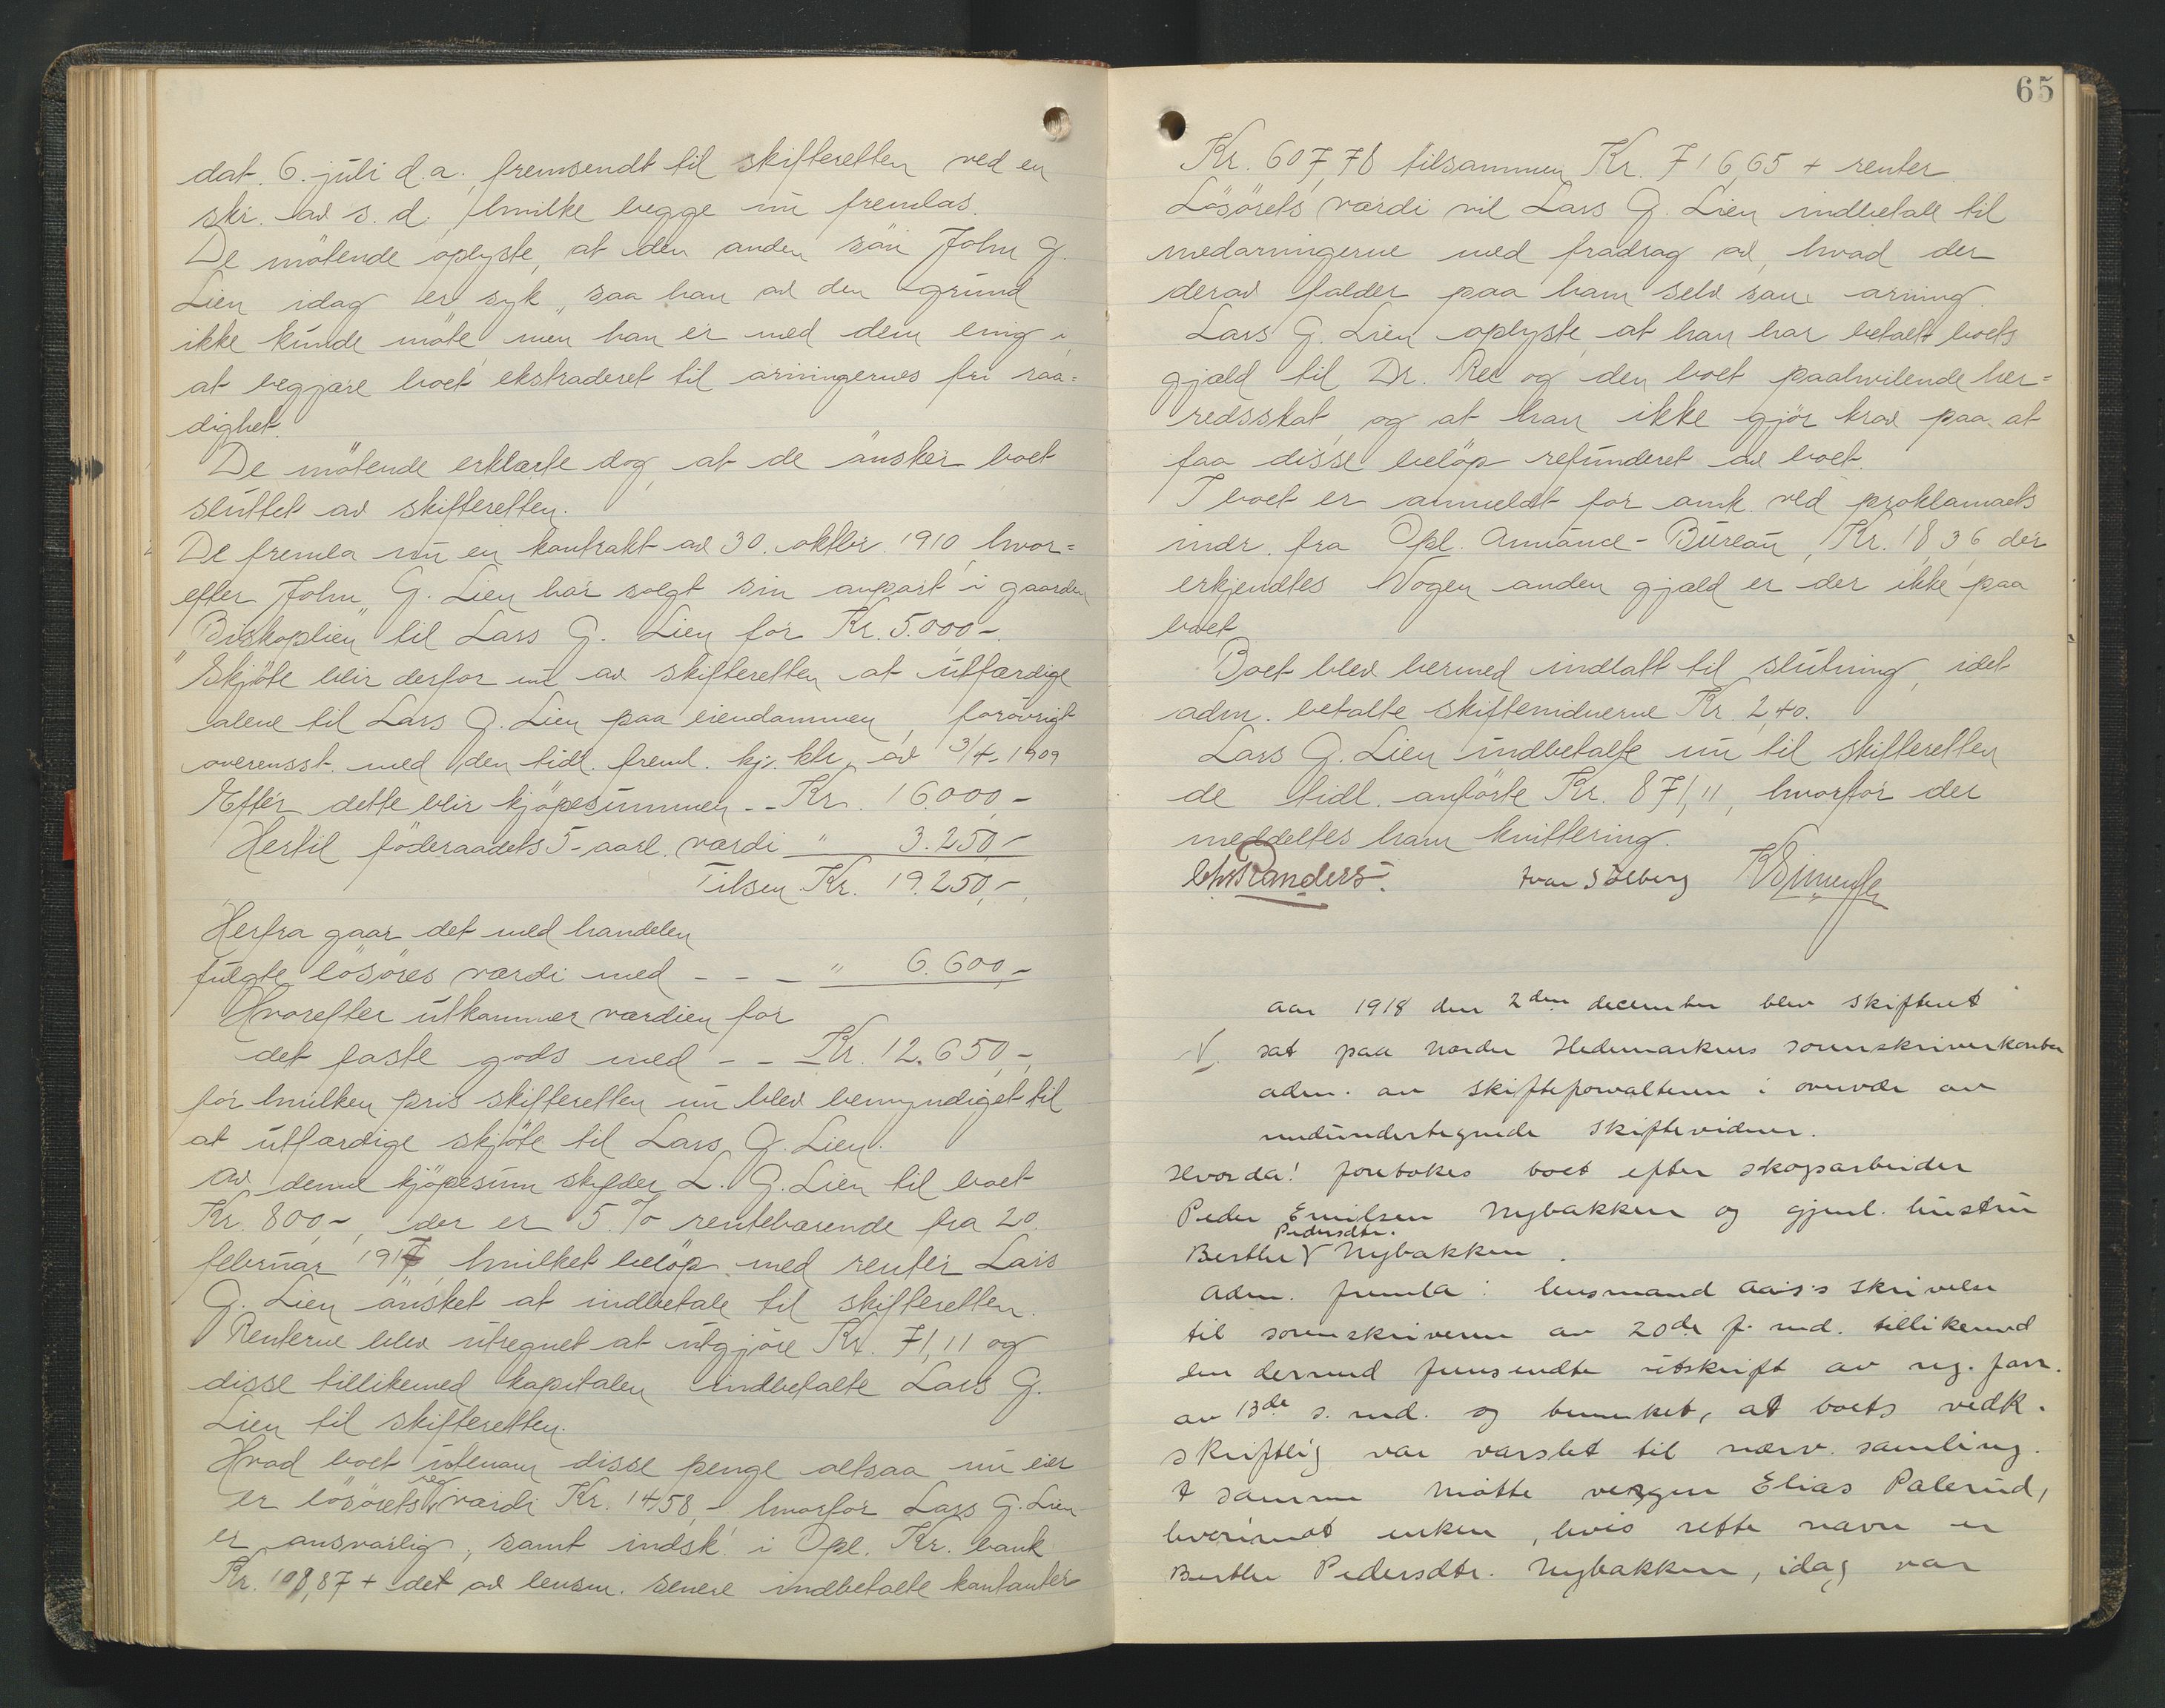 dat. 6. juli d.a. fremsendt til skifteretten ved en
skr. av s. d. hvilke begge nu fremlas.
De møtende oplyste, at den anden søn John G.
Lien idag er syk, saa han av den grund
ikke kunde møte men han er med dem enig i
at begjære boet ekstraderet til arvingernes fri raa=
dighet.
De møtende erklærte dog, at de ønsker boet
sluttet av skifteretten.
De fremla nu en kontrakt av 30. oktbr. 1910, hvor=
efter John G. Lien har solgt sin anpart i gaarden
„Biskoplien" til Lars G. Lien for Kr. 5.000,-.
Skjøte blir derfor nu av skifteretten at utfærdige
alene til Lars G. Lien paa eiendommen, forøvrigt
overensst. med den tidl. freml. kj. ktr. av 3/4-1909
Efter dette blir kjøpesummen -- Kr. 16000,-
Hertil føderaadets 5-aarl. værdi " 3.250,-
Tilsm. Kr. 19.250,-.
Herfra gaar det med handelen
fulgte løsøres værdi med - - - " 6.600,-
Hvorefter utkommer værdien for
det faste gods med - - Kr. 12.650,-,
for hvilken pris skifteretten nu blev bemyndiget til
at utfærdige skjøte til Lars G. Lien.
Av denne kjøpesum skylder L. G. Lien til boet
Kr. 800,-, der er 5 % rentebærende fra 20.
februar 1917, hvilket beløp med renter Lars
G. Lien ønsket at indbetale til skifteretten.
Renterne blev utregnet at utgjøre Kr. 71,11 og
disse tillikemed kapitalen indbetalte Lars G.
Lien til skifteretten.
Hvad boet utenom disse penge altsaa nu eier
er løsørets værdi Kr. 1458,- hvorfor Lars G. Lien
er ansvarlig, samt indsk. i Opl. Kr. bank
Kr. 108,87 + det av lensm. senere indbetalte kontanter
65
Kr. 607,78 tilsammen Kr. 716,65 + renter.
Løsørets værdi vil Lars G. Lien indbetale til
medarvingerne med fradrag av, hvad der
derav falder paa ham selv som arving.
Lars G. Lien oplyste, at han har betalt boets
gjæld til Dr. Ree og den boet paahvilende her=
redsskat, og at han ikke gjør krav paa at
faa disse beløp refunderet av boet.
I boet er anmeldt for ank. ved proklamaets
indr. fra Opl. Annonce-Bureau, Kr. 18,36 der
erkjendtes Nogen anden gjæld er der ikke paa
boet
Boet blev hermed indtatt til slutning, idet
adm. betalte skiftevidnerne Kr. 2,40.
Lars G. Lien indbetalte nu til skifteretten
de tidl. anførte Kr. 871,11, hvorfor der
meddeltes ham kvittering.
Chr Randers. Ivar Solberg
Aar 1918 den 2den december blev skifteret
sat paa Nordre Hedemarkens sorenskriverkontor
adm. av skifteforvalteren i overvær av
medundertegnede skiftevidner.
Hvorda! foretokes boet efter skogsarbeider
Peder Emilsen Nybakken og gjenl. hustru
Pedersdtr.
Berthe V Nybakken.
Adm. fremla: lensmand Aas's skrivelse
til sorenskriveren av 20de f. md. tillikemed
den dermed fremsendte utskrift av reg. forr.
av 13de s. md. og bemerket, at boets vedk.
skriftlig var varslet til nærv. samling.
I samme møtte vergen Elias Palerud,
hvorimot enken, hvis rette navn er
Berthe Pedersdtr. Nybakken, idag var